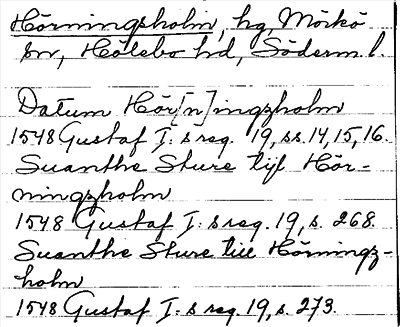 Hörningsholm, hg, Mörkö
sn, Hölebo hd, Söderm. l.
Datum Hör[n]ingzholm
1548 Gustaf I: s reg. 19, ss. 14, 15, 16.
Suanthe Sture tijl Hör-
ningzholm
1548 Gustaf I: s reg. 19, s. 268.
Suanthe Sture till Hörningz-
holm
1548 Gustaf I: s reg. 19, s. 273.